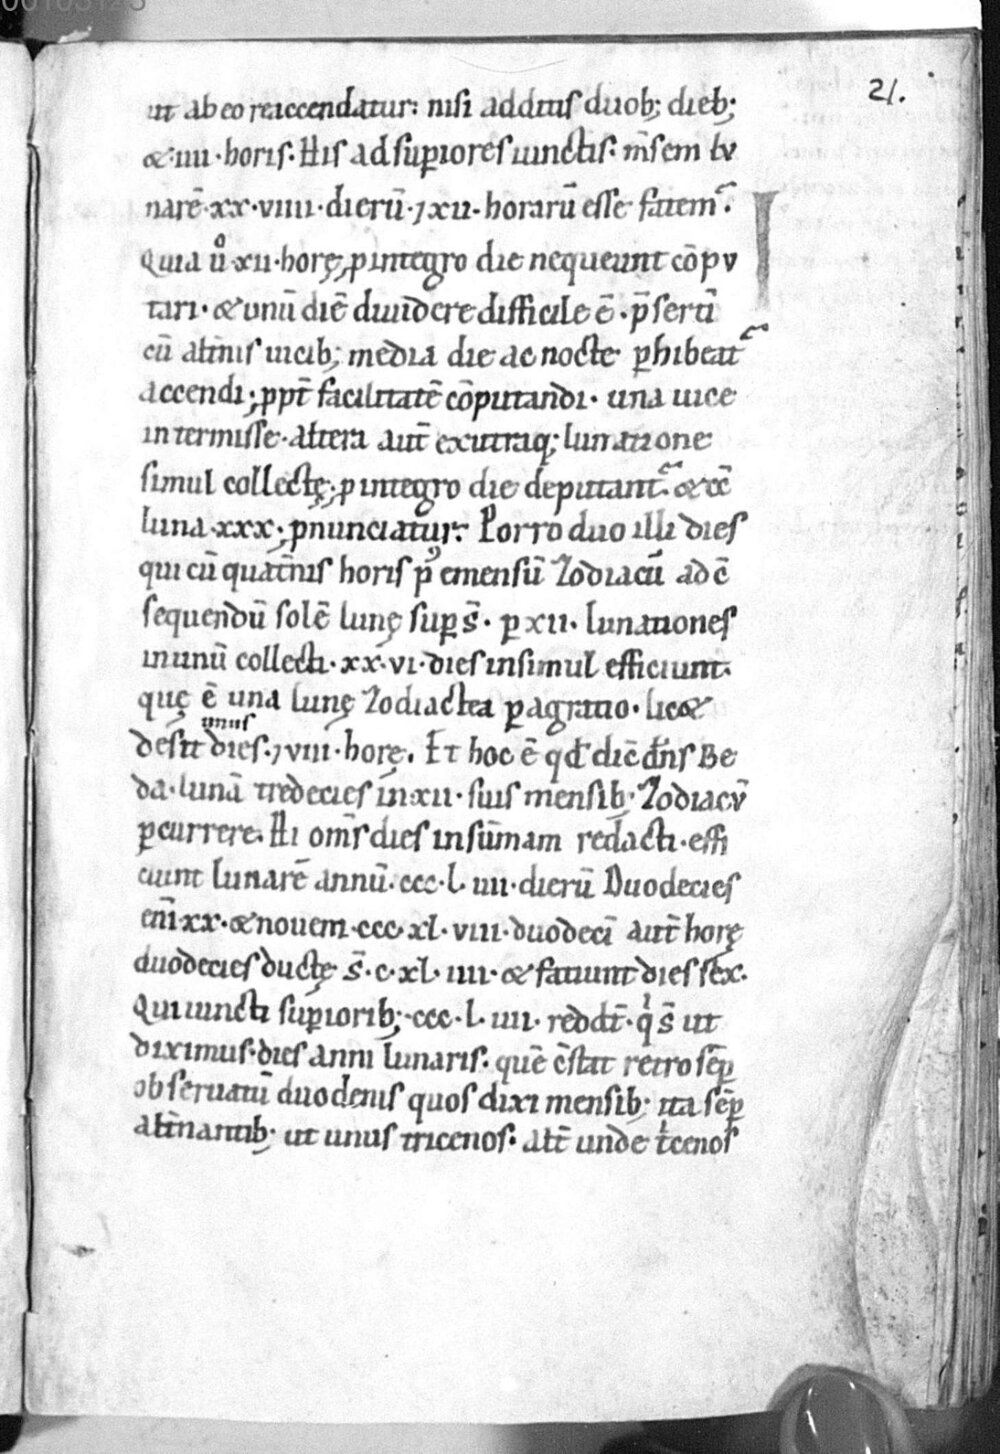 00103123
21.
ut ab eo reaccendatur: nisi additis duob; dieb;
& ·iiii· horis· His ad superiores iunctis· m̅sem lu
narē·xx·viiii·dierū·⁊xii·horarū esse fatem᷑·
Quia ů·xii·horę ꝑ integro die nequeunt cōpu
tari· & unū diē diuidere difficile ē· p̄serti̅
cū alt̄nis uicib; media die ac nocte ꝑhibeant᷑
accendi; ꝓpt̄ facilitatē cōputandi· una uice
intermisse· altera aut̄ ex utraq; lunatione
simul collectę; ꝓ integro die deputant᷑· & cc̄
luna·xxx·ꝓnunciatur: Porro duo illi dies
qui cū quat̄nis horis p᷒ emensū Zodiacū ad c̄
sequendū solē lunę suꝑ s̄· ꝑ xii· lunationes
in unū collecti·xx·vi·dies insimul efficiunt·
quę ē una lunę Zodiactea ꝑagratio· lic&
unus
desit dies·⁊viii·horę· Et hoc ē qd̄ dic̄ dn̄s Be
da·lunā tredecies in xii· suis mensib; Zodiacū
ꝑcurrere· Hi om̄s dies in sūmam redacti·effi
ciunt lunarē annū·ccc·l·iiii·dierū Duodecies
eni̅ xx·& nouem·ccc·xl·viii·duodeci̅ aut̄ horę
duodecies ductę s̄·c·xl·iiii·& faciunt dies sex·
Qui iuncti superiorib;·ccc·l·iiii· reddt̄·qⁱ s̄ ut
diximus·dies anni lunaris· quē c̄stat retro sēꝑ
obseruatū duodenis quos dixi mensib; ita sēꝑ
alt̄nantib; ut unus tricenos· alt̄ unde tⁱcenos